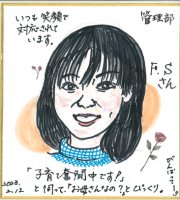 いつも笑顔で
対応されて
います。
管理部
F.S
さん
「子育て奮闘中です!」
と伺って、「お母さんなの?」とびっくり。
がんばってー!
2008.
2.12